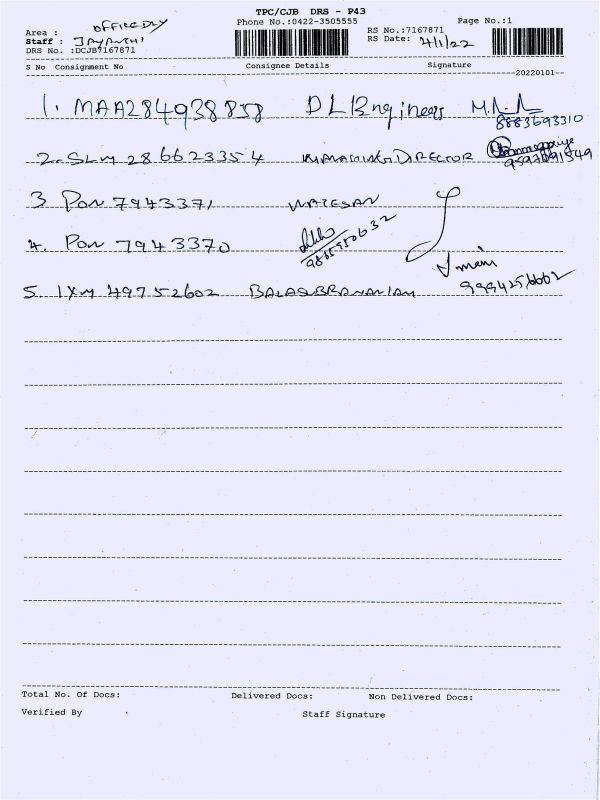 TPC/CJB DRS - P43
Phone No.:0422-3505555
Page No.:1
Area : OFFICE DLY
Staff :
DRS No. :DCJB7167871
RS No.:7167871
RS Date: 4/1/22
S No Consignment No Consignee Details Signature
20220101
1. MAA284938858 DL Engineers
8883693310
2. SLM 286623354 MANAGING DIRECTOR
3 PON 7943371 NATESAN
4. PON 7943370
mani
5. IXM 49752602 BALASUBRAMANIAM
Total No. Of Docs: Delivered Docs: Non Delivered Docs:
Verified By Staff Signature